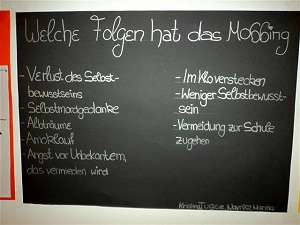 Welche Folgen hat das Mobbing
- Verlust des Selbst-
bewusstseins
- Selbstmordgedanke
- Albträume
- Amoklauf
- Angst vor Unbekantem,
das vermieden wird
- Im Klo verstecken
- Weniger Selbstbewusst-
sein
- Vermeidung zur Schule
zugehen
Kristina, Tugce, Marina